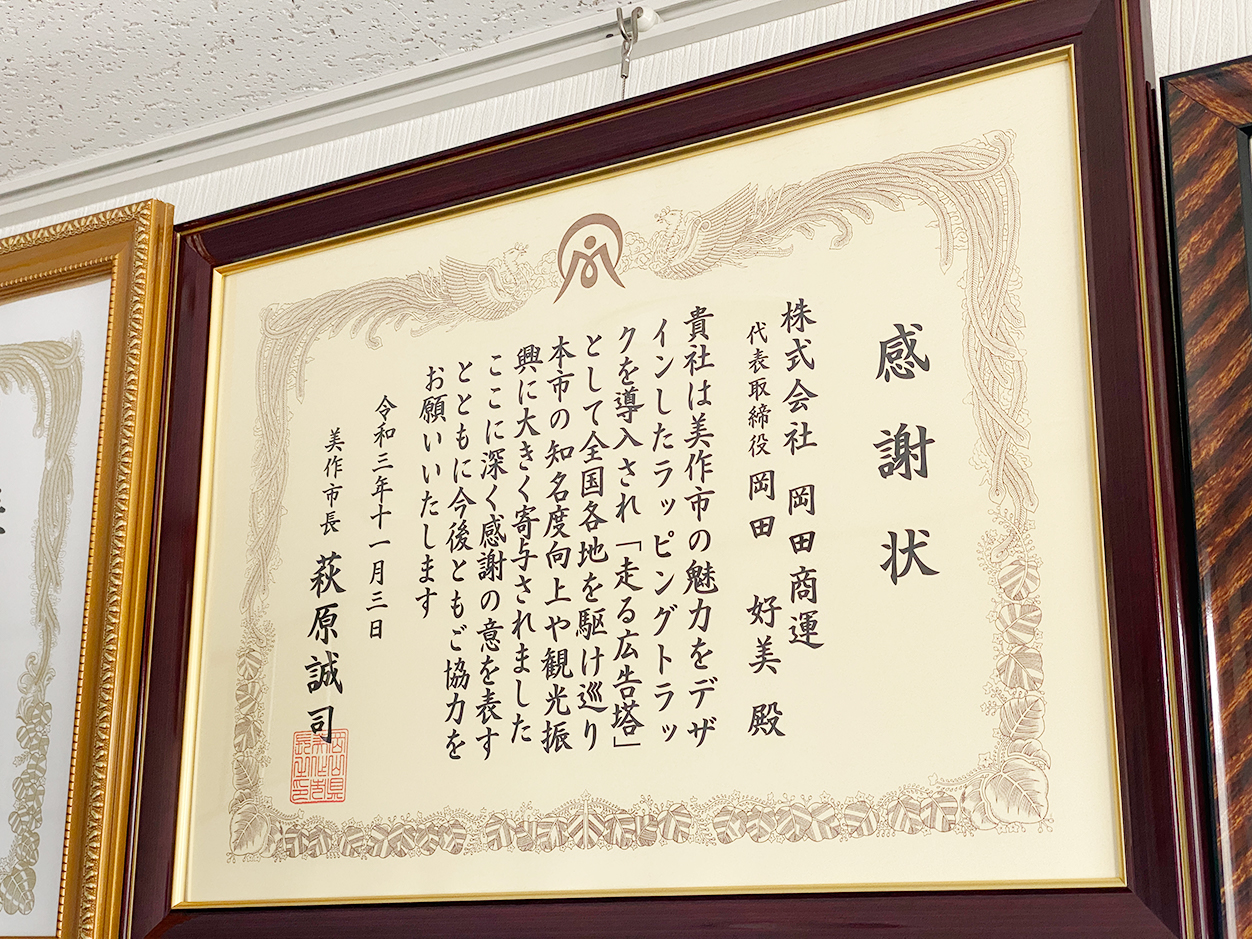 感謝状
株式会社 岡田商運
代表取締役 岡田 好美 殿
貴社は美作市の魅力をデザ
インしたラッピングトラッ
クを導入され「走る広告塔」
として全国各地を駆け巡り
本市の知名度向上や観光振
興に大きく寄与されました
ここに深く感謝の意を表す
とともに今後ともご協力を
お願いいたします
令和三年十一月三日
美作市長 萩原誠司